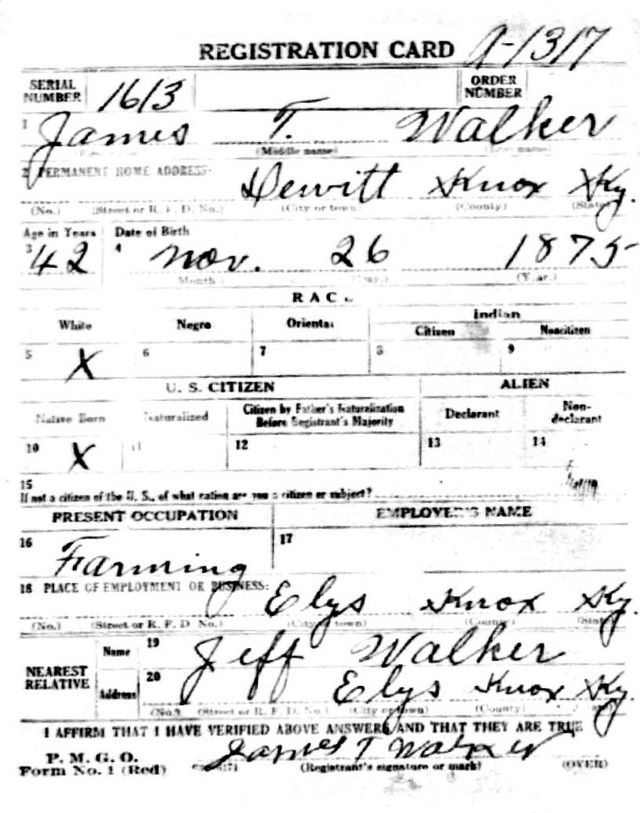 REGISTRATION CARD A-1317
SERIAL NUMBER 1613 ORDER NUMBER
1 James T. Walker
(Middle name) (Last name)
2 PERMANENT HOME ADDRESS: Dewitt Knox Ky.
(No.) (Street or R. F. D. No.) (City or town) (County) (State)
Age in Years Date of Birth
3 42 4 Nov. 26 1875
(Month) (Day) (Year)
RACE
White Negro Oriental Indian
Citizen Noncitizen
5 X 6 7 8 9
U. S. CITIZEN ALIEN
Native Born Naturalized Citizen by Father's Naturalization Before Registrant's Majority Declarant Non-declarant
10 X 11 12 13 14
15
If not a citizen of the U. S., of what nation are you a citizen or subject?
PRESENT OCCUPATION EMPLOYER'S NAME
16 Farming 17
18 PLACE OF EMPLOYMENT OR BUSINESS: Elys Knox Ky.
(No.) (Street or R. F. D. No.) (City or town) (County) (State)
NEAREST RELATIVE Name 19 Jeff Walker
Address 20 Elys Knox Ky.
(No.) (Street or R. F. D. No.) (City or town) (County) (State)
I AFFIRM THAT I HAVE VERIFIED ABOVE ANSWERS AND THAT THEY ARE TRUE
P. M. G. O. James T Walker
Form No. 1 (Red) (Registrant's signature or mark) (OVER)